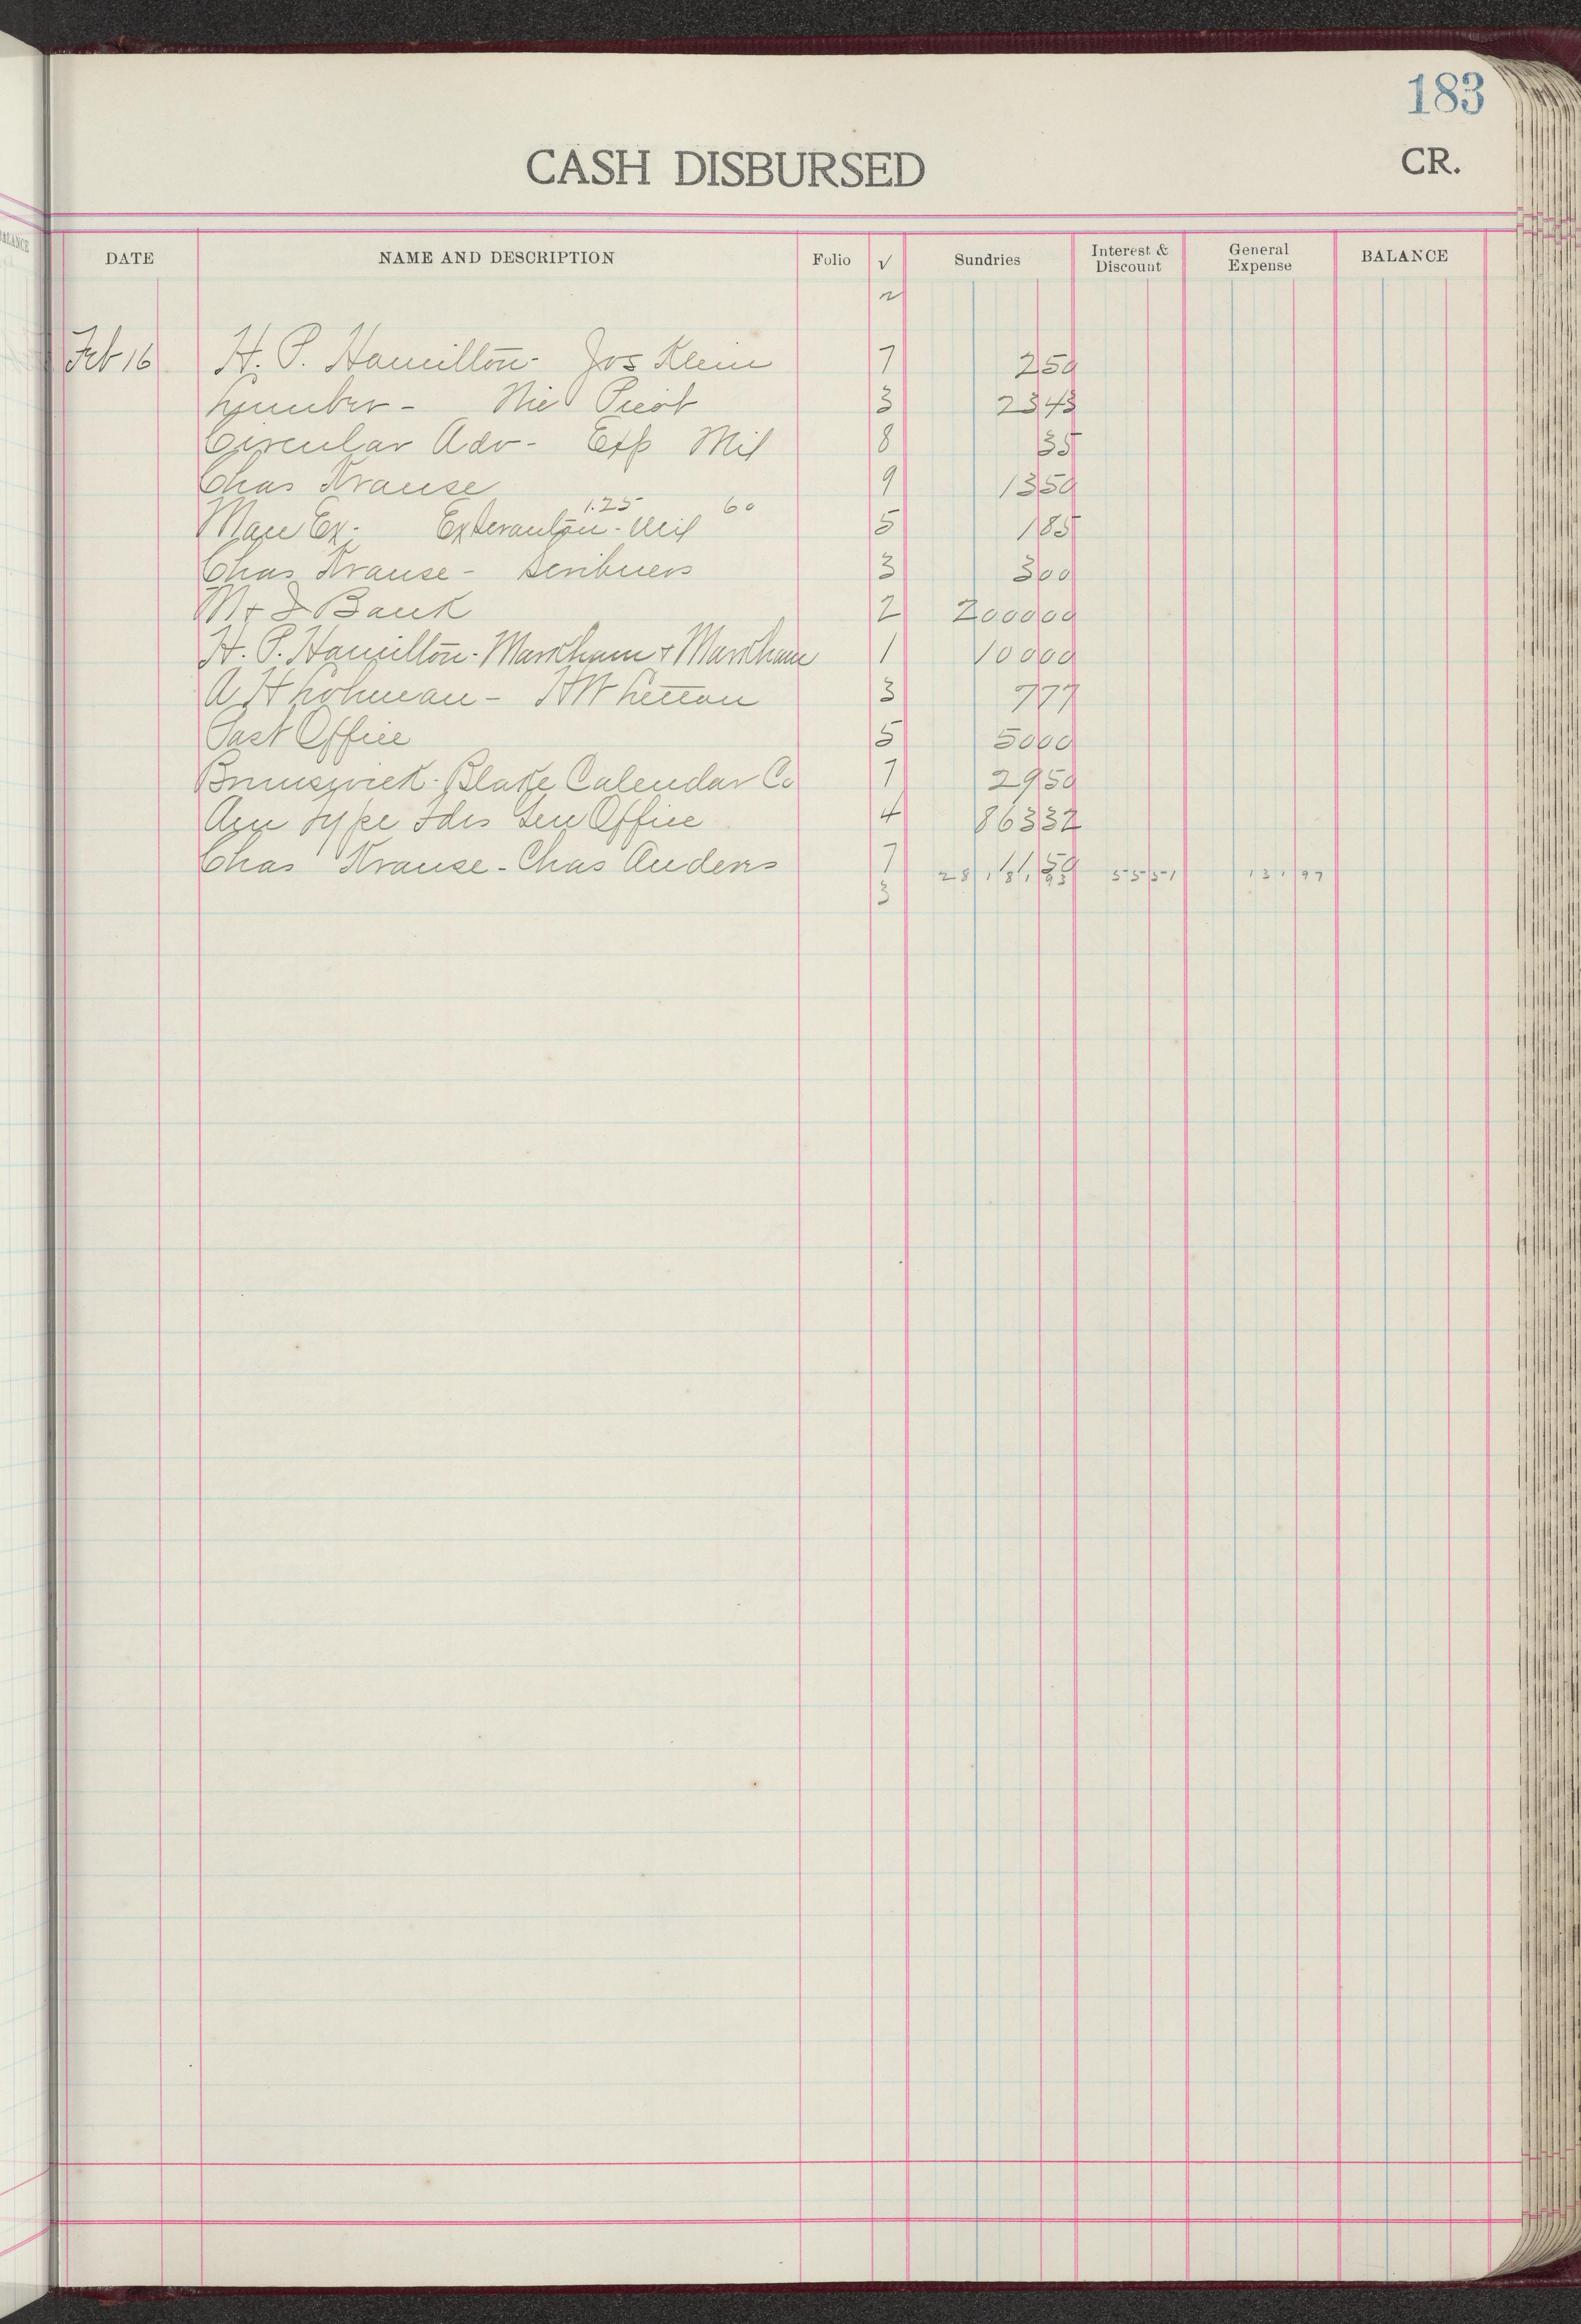 183
CASH DISBURSED
CR.
DATE NAME AND DESCRIPTION Folio √ Sundries Interest & Discount General Expense BALANCE
Feb 16 H. P. Hamilton - Jos Klein 7 2 50
Lumber - 3 23 43
Circular Adv - Exp Mil 8 35
Chas Krause 9 13 50
1.25 60
Man Ex - Mil 5 1 85
Chas Krause - Scribners 3 3 00
M & I Bank 2 2000 00
H. P. Hamilton - Markham & Markham 1 100 00
A H Lohman - 3 7 77
Post Office 5 50 00
Brunswick - Blake Calendar Co 7 29 50
Am Type Fdrs Gen Office 4 863 32
Chas Krause - Chas Anders 7 11 50
3 28,181,93 55 51 131 97